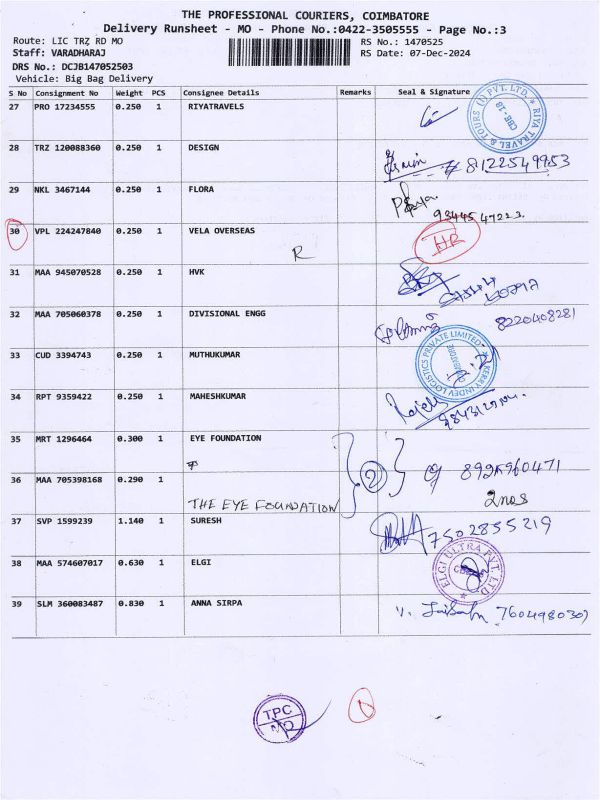 THE PROFESSIONAL COURIERS, COIMBATORE
Delivery Runsheet - MO - Phone No.:0422-3505555 - Page No.:3
Route: LIC TRZ RD MO RS No.: 1470525
Staff: VARADHARAJ RS Date: 07-Dec-2024
DRS No.: DCJB147052503
Vehicle: Big Bag Delivery
S No Consignment No Weight PCS Consignee Details Remarks Seal & Signature
27 PRO 17234555 0.250 1 RIYATRAVELS
RIYA TRAVEL & TOURS (I) PVT. LTD. CBE-18
28 TRZ 120088360 0.250 1 DESIGN 8122549953
29 NKL 3467144 0.250 1 FLORA
30 VPL 224247840 0.250 1 VELA OVERSEAS HR
R
31 MAA 945070528 0.250 1 HVK
32 MAA 705060378 0.250 1 DIVISIONAL ENGG 8220408281
33 CUD 3394743 0.250 1 MUTHUKUMAR
KERRY INDEV LOGISTICS PRIVATE LIMITED
34 RPT 9359422 0.250 1 MAHESHKUMAR
35 MRT 1296464 0.300 1 EYE FOUNDATION
2
36 MAA 705398168 0.290 1
THE EYE FOUNDATION 2nos
37 SVP 1599239 1.140 1 SURESH 7502855219
38 MAA 574607017 0.630 1 ELGI
ELGI ULTRA PVT. LTD.
39 SLM 360083487 0.830 1 ANNA SIRPA
TPC
MO
1